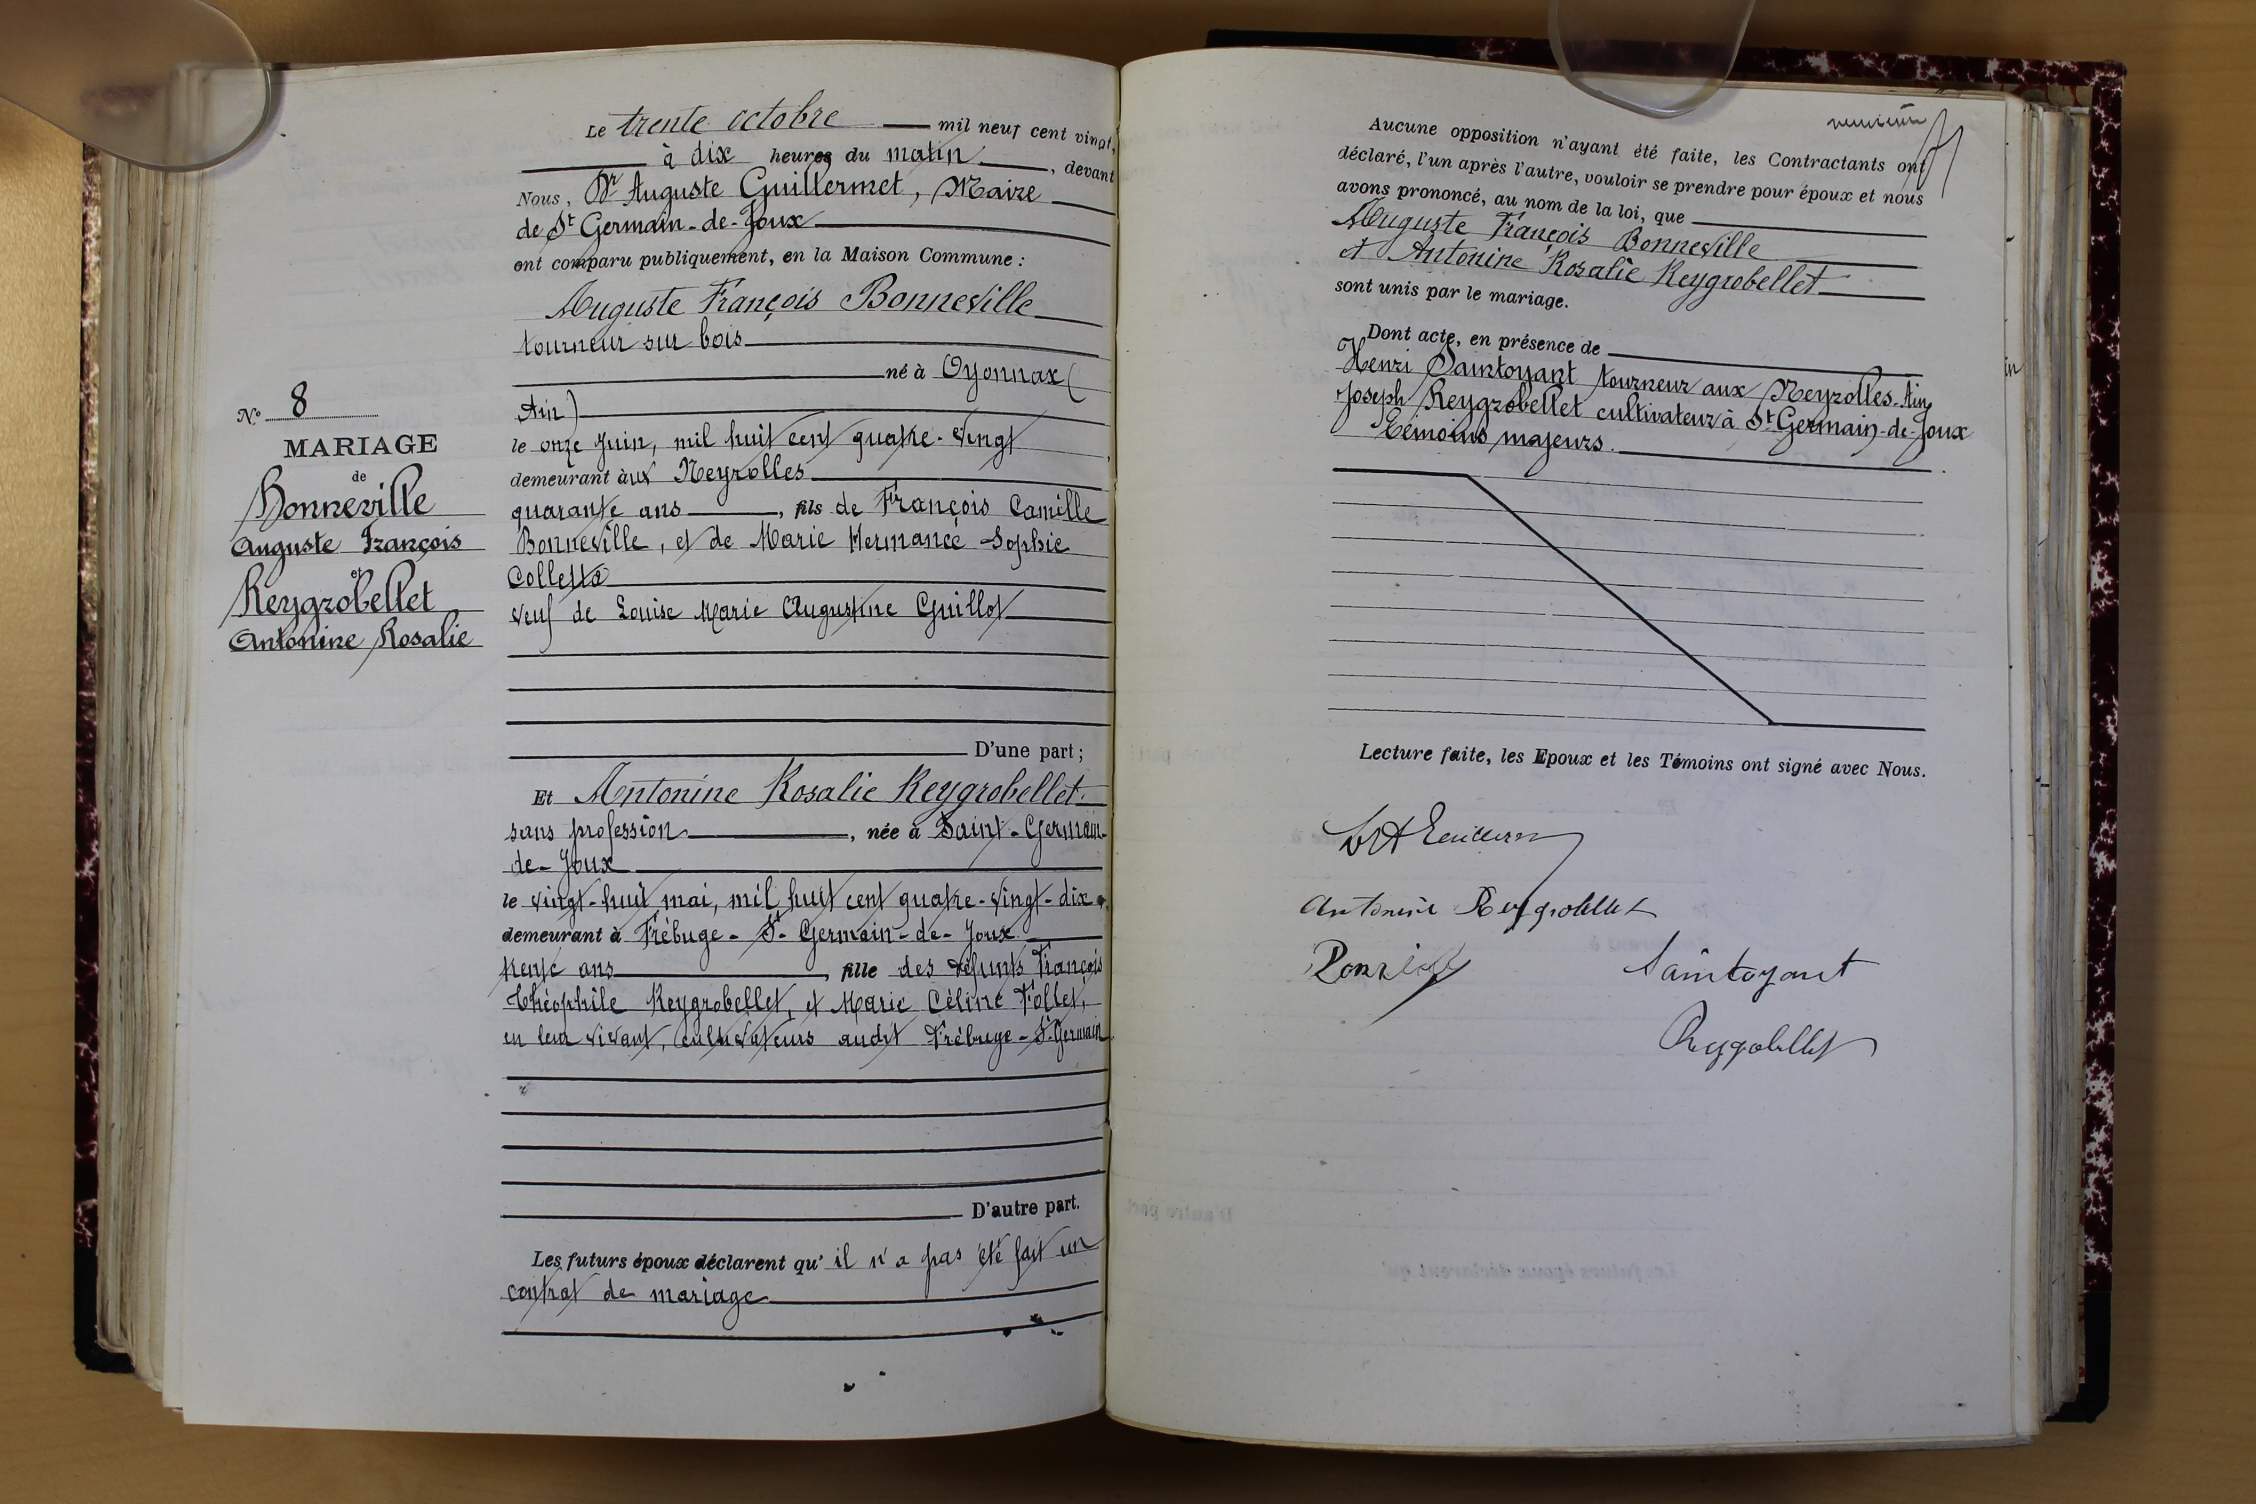 Le trente octobre mil neuf cent vingt,
à dix heures du matin, devant
Nous, Dr Auguste Guillermet, Maire
de St Germain-de-Joux
ont comparu publiquement, en la Maison Commune :
Auguste François Bonneville
tourneur sur bois
né à Oyonnax (
Ain)
le onze Juin, mil huit cent quatre-vingt
demeurant aux Neyrolles
quarante ans, fils de François Camille
Bonneville, et de Marie Hermance Sophie
Colletta
veuf de Louise Marie Augustine Guillot
D'une part ;
Et Antonine Rosalie Reygrobellet
sans profession, née à Saint-Germain-
de-Joux
le vingt-huit mai, mil huit cent quatre-vingt-dix
demeurant à Trébuge-St-Germain-de-Joux
trente ans, fille des défunts François
Théophile Reygrobellet, et Marie Céline Follet,
en leur vivant, cultivateurs audit Trébuge-St-Germain
D'autre part.
Les futurs époux déclarent qu'il n'a pas été fait un
contrat de mariage
N° 8
MARIAGE
de
Bonneville
Auguste François
et
Reygrobellet
Antonine Rosalie
Aucune opposition n'ayant été faite, les Contractants ont
déclaré, l'un après l'autre, vouloir se prendre pour époux et nous
avons prononcé, au nom de la loi, que
Auguste François Bonneville
et Antonine Rosalie Reygrobellet
sont unis par le mariage.
Dont acte, en présence de
Henri Saintoyant tourneur aux Neyrolles-Ain,
Joseph Reygrobellet cultivateur à St-Germain-de-Joux
témoins majeurs.
Lecture faite, les Epoux et les Témoins ont signé avec Nous.
Antonine Reygrobellet
Saintoyant
Reygrobellet